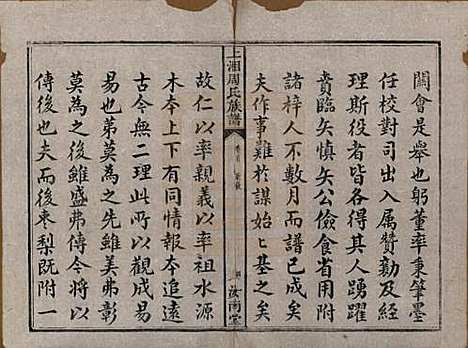 闗會是舉也躬董率秉筆墨
任校對司出入属贊勷及經
理斯役者各得其人踴躍
賁臨矢慎矢公儉食省用附
諸梓人不數月而譜已成矣
夫作事難於謀始〻基之矣
上湘周氏族譜
卷首
汝南堂
故仁以率親義以率祖水源
木本上下有同情報本追遠
古今無二理此所以觀成易
易也弟莫為之先雖美弗彰
莫為之後雖盛弗傳今將為
傳後也夫而後棗梨既附一